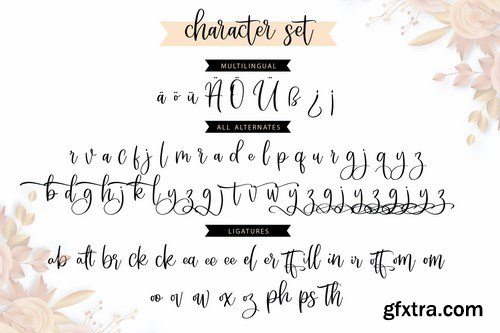 character set
MULTILINGUAL
ä ö ü Ä Ö Ü ß ¿ ¡
ALL ALTERNATES
r v a c f j l m r a d e l p q u r g j q y z
b d g h j k l y z g j t v w y z g j y z g j y z
LIGATURES
ab att br ck ck ea ee ee el er ff fill in ir off om om
os ov aw ox oz ph ps th
gfxtra.com